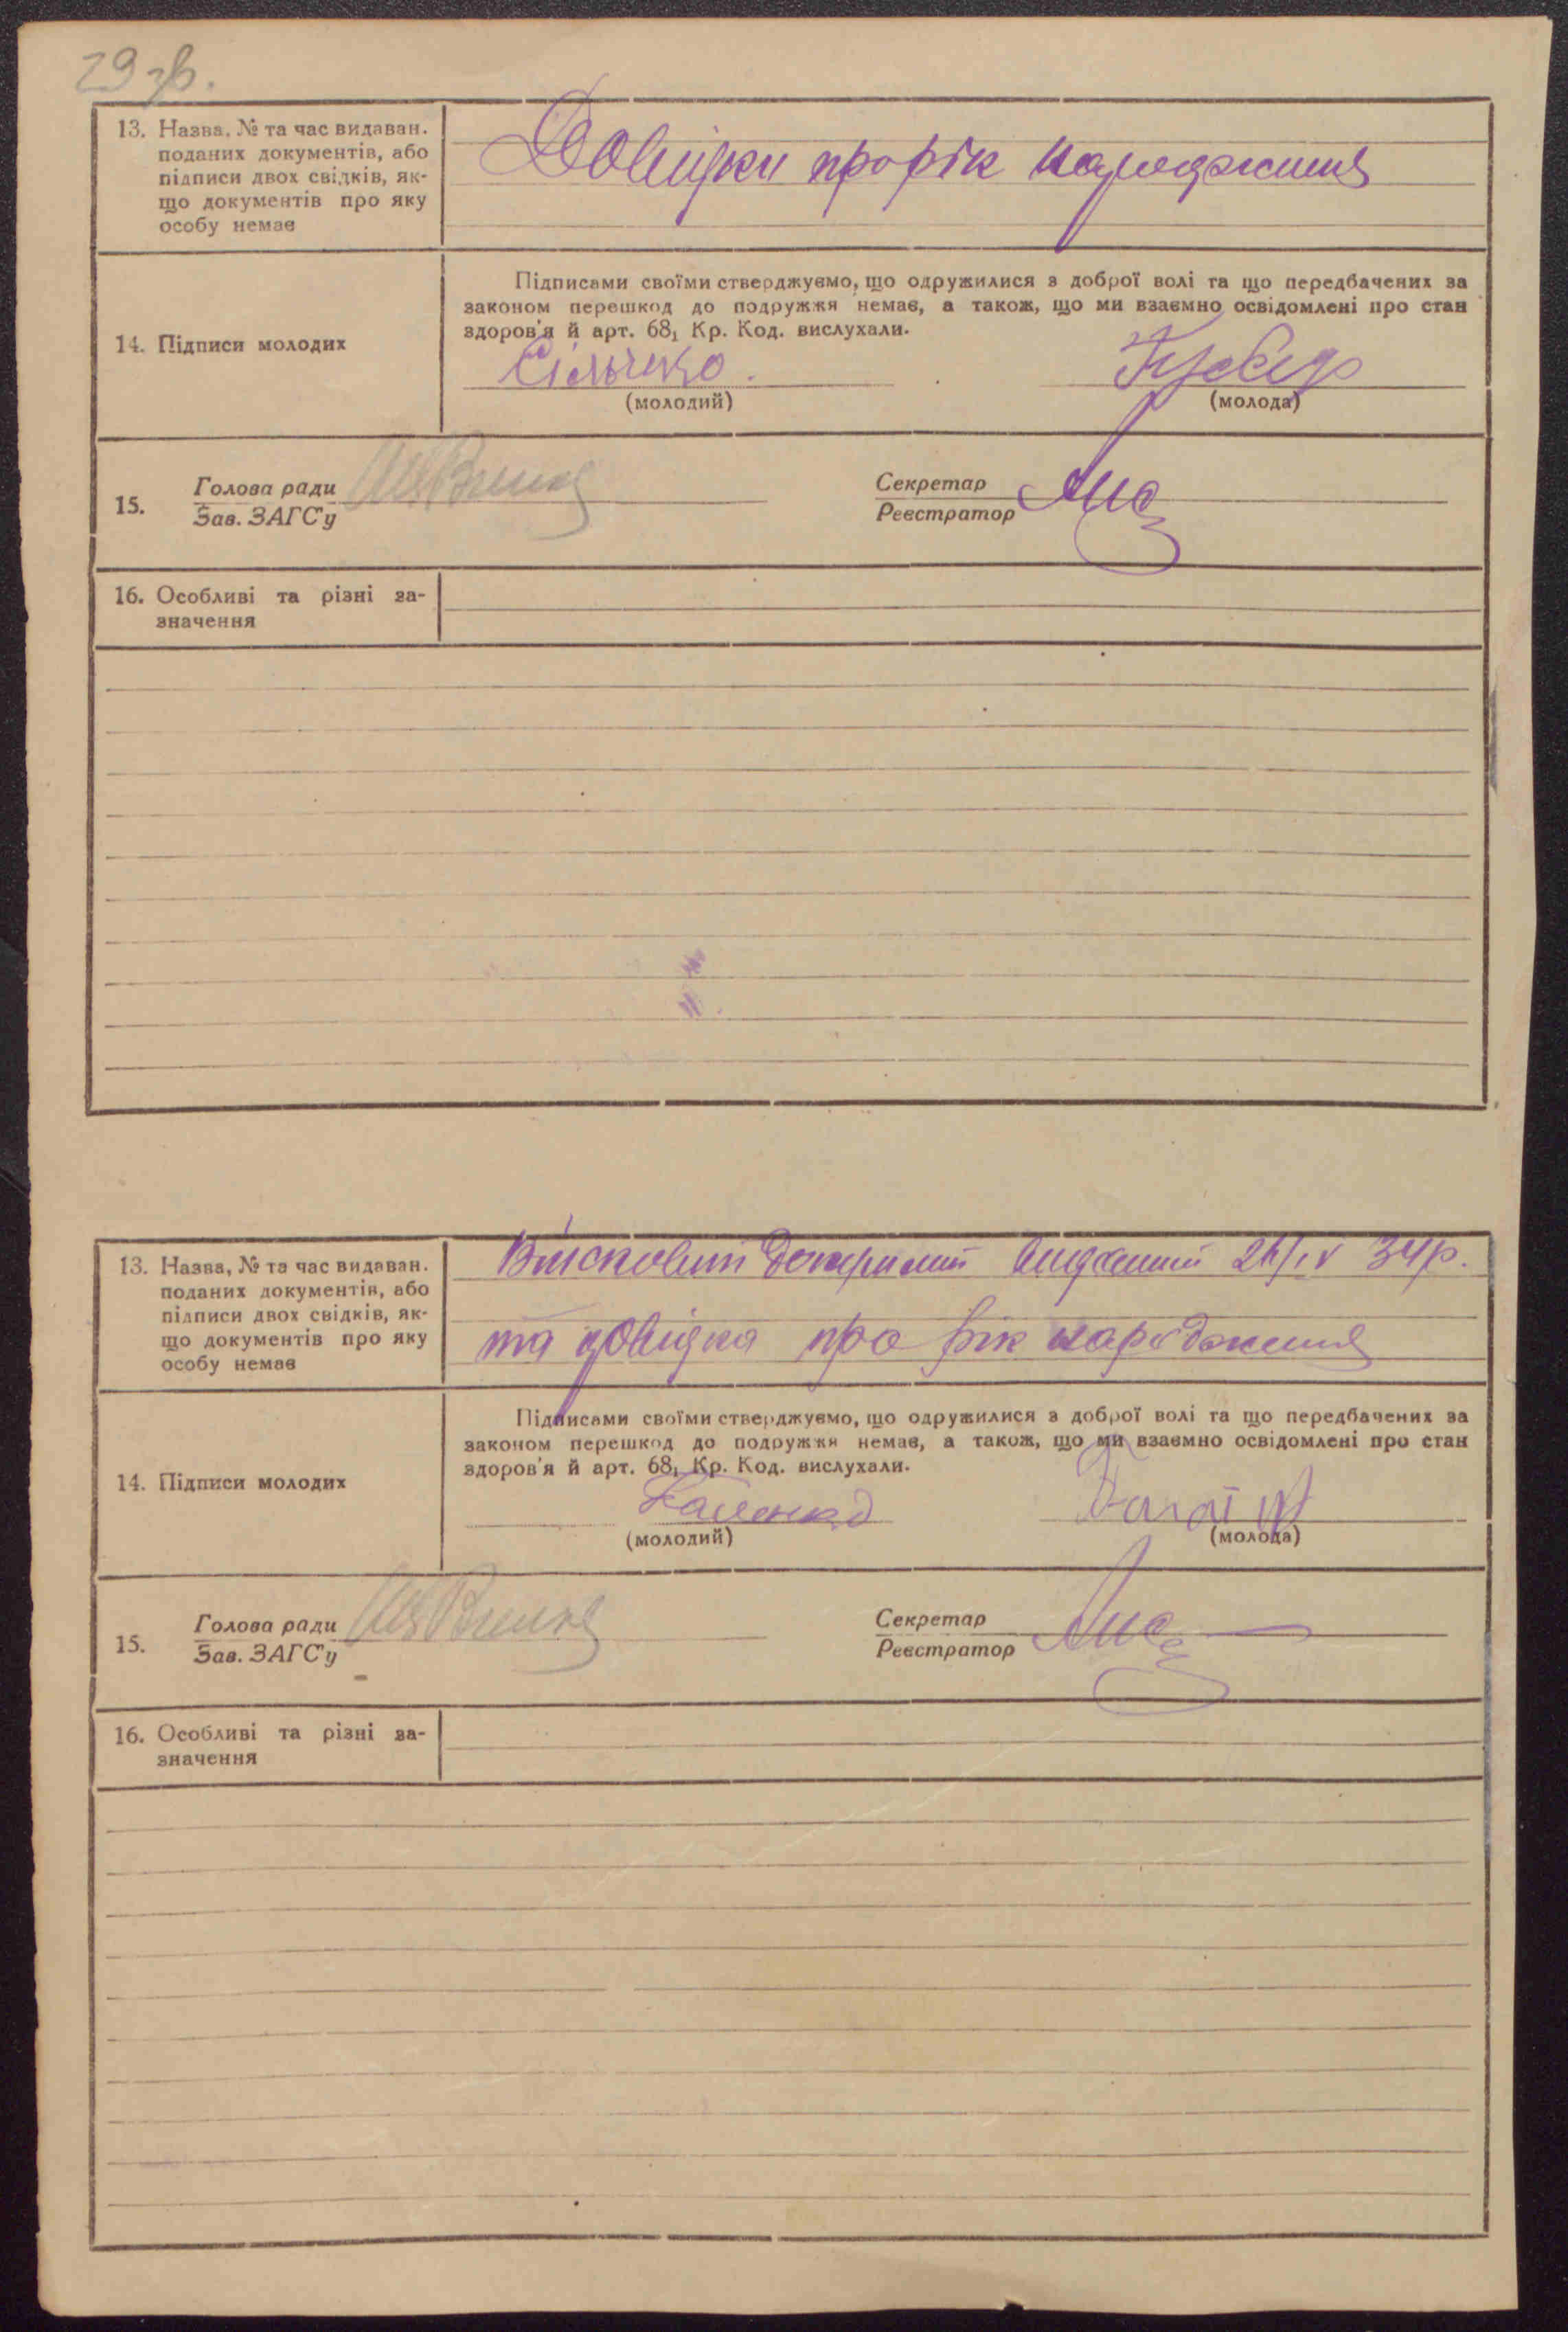 29 зв.
13. Назва, № та час видаван. поданих документів, або підписи двох свідків, якщо документів про яку особу немає
Довідки про рік народження
Підписами своїми стверджуємо, що одружилися з доброї волі та що передбачених за
законом перешкод до подружжя немає, а також, що ми взаємно освідомлені про стан
здоров'я й арт. 68₁ Кр. Код. вислухали.
14. Підписи молодих
(молодий) (молода)
15. Голова ради
Зав. ЗАГС'у
Секретар
Реєстратор
16. Особливі та різні за-
значення
13. Назва, № та час видаван.
поданих документів, або
підписи двох свідків, як-
що документів про яку
особу немає
Військовий документ виданий 34р.
та довідка про рік народження
Підписами своїми стверджуємо, що одружилися з доброї волі та що передбачених за
законом перешкод до подружжя немає, а також, що ми взаємно освідомлені про стан
здоров'я й арт. 68₁ Кр. Код. вислухали.
14. Підписи молодих
(молодий) (молода)
15. Голова ради
Зав. ЗАГС'у
Секретар
Реєстратор
16. Особливі та різні за-
значення